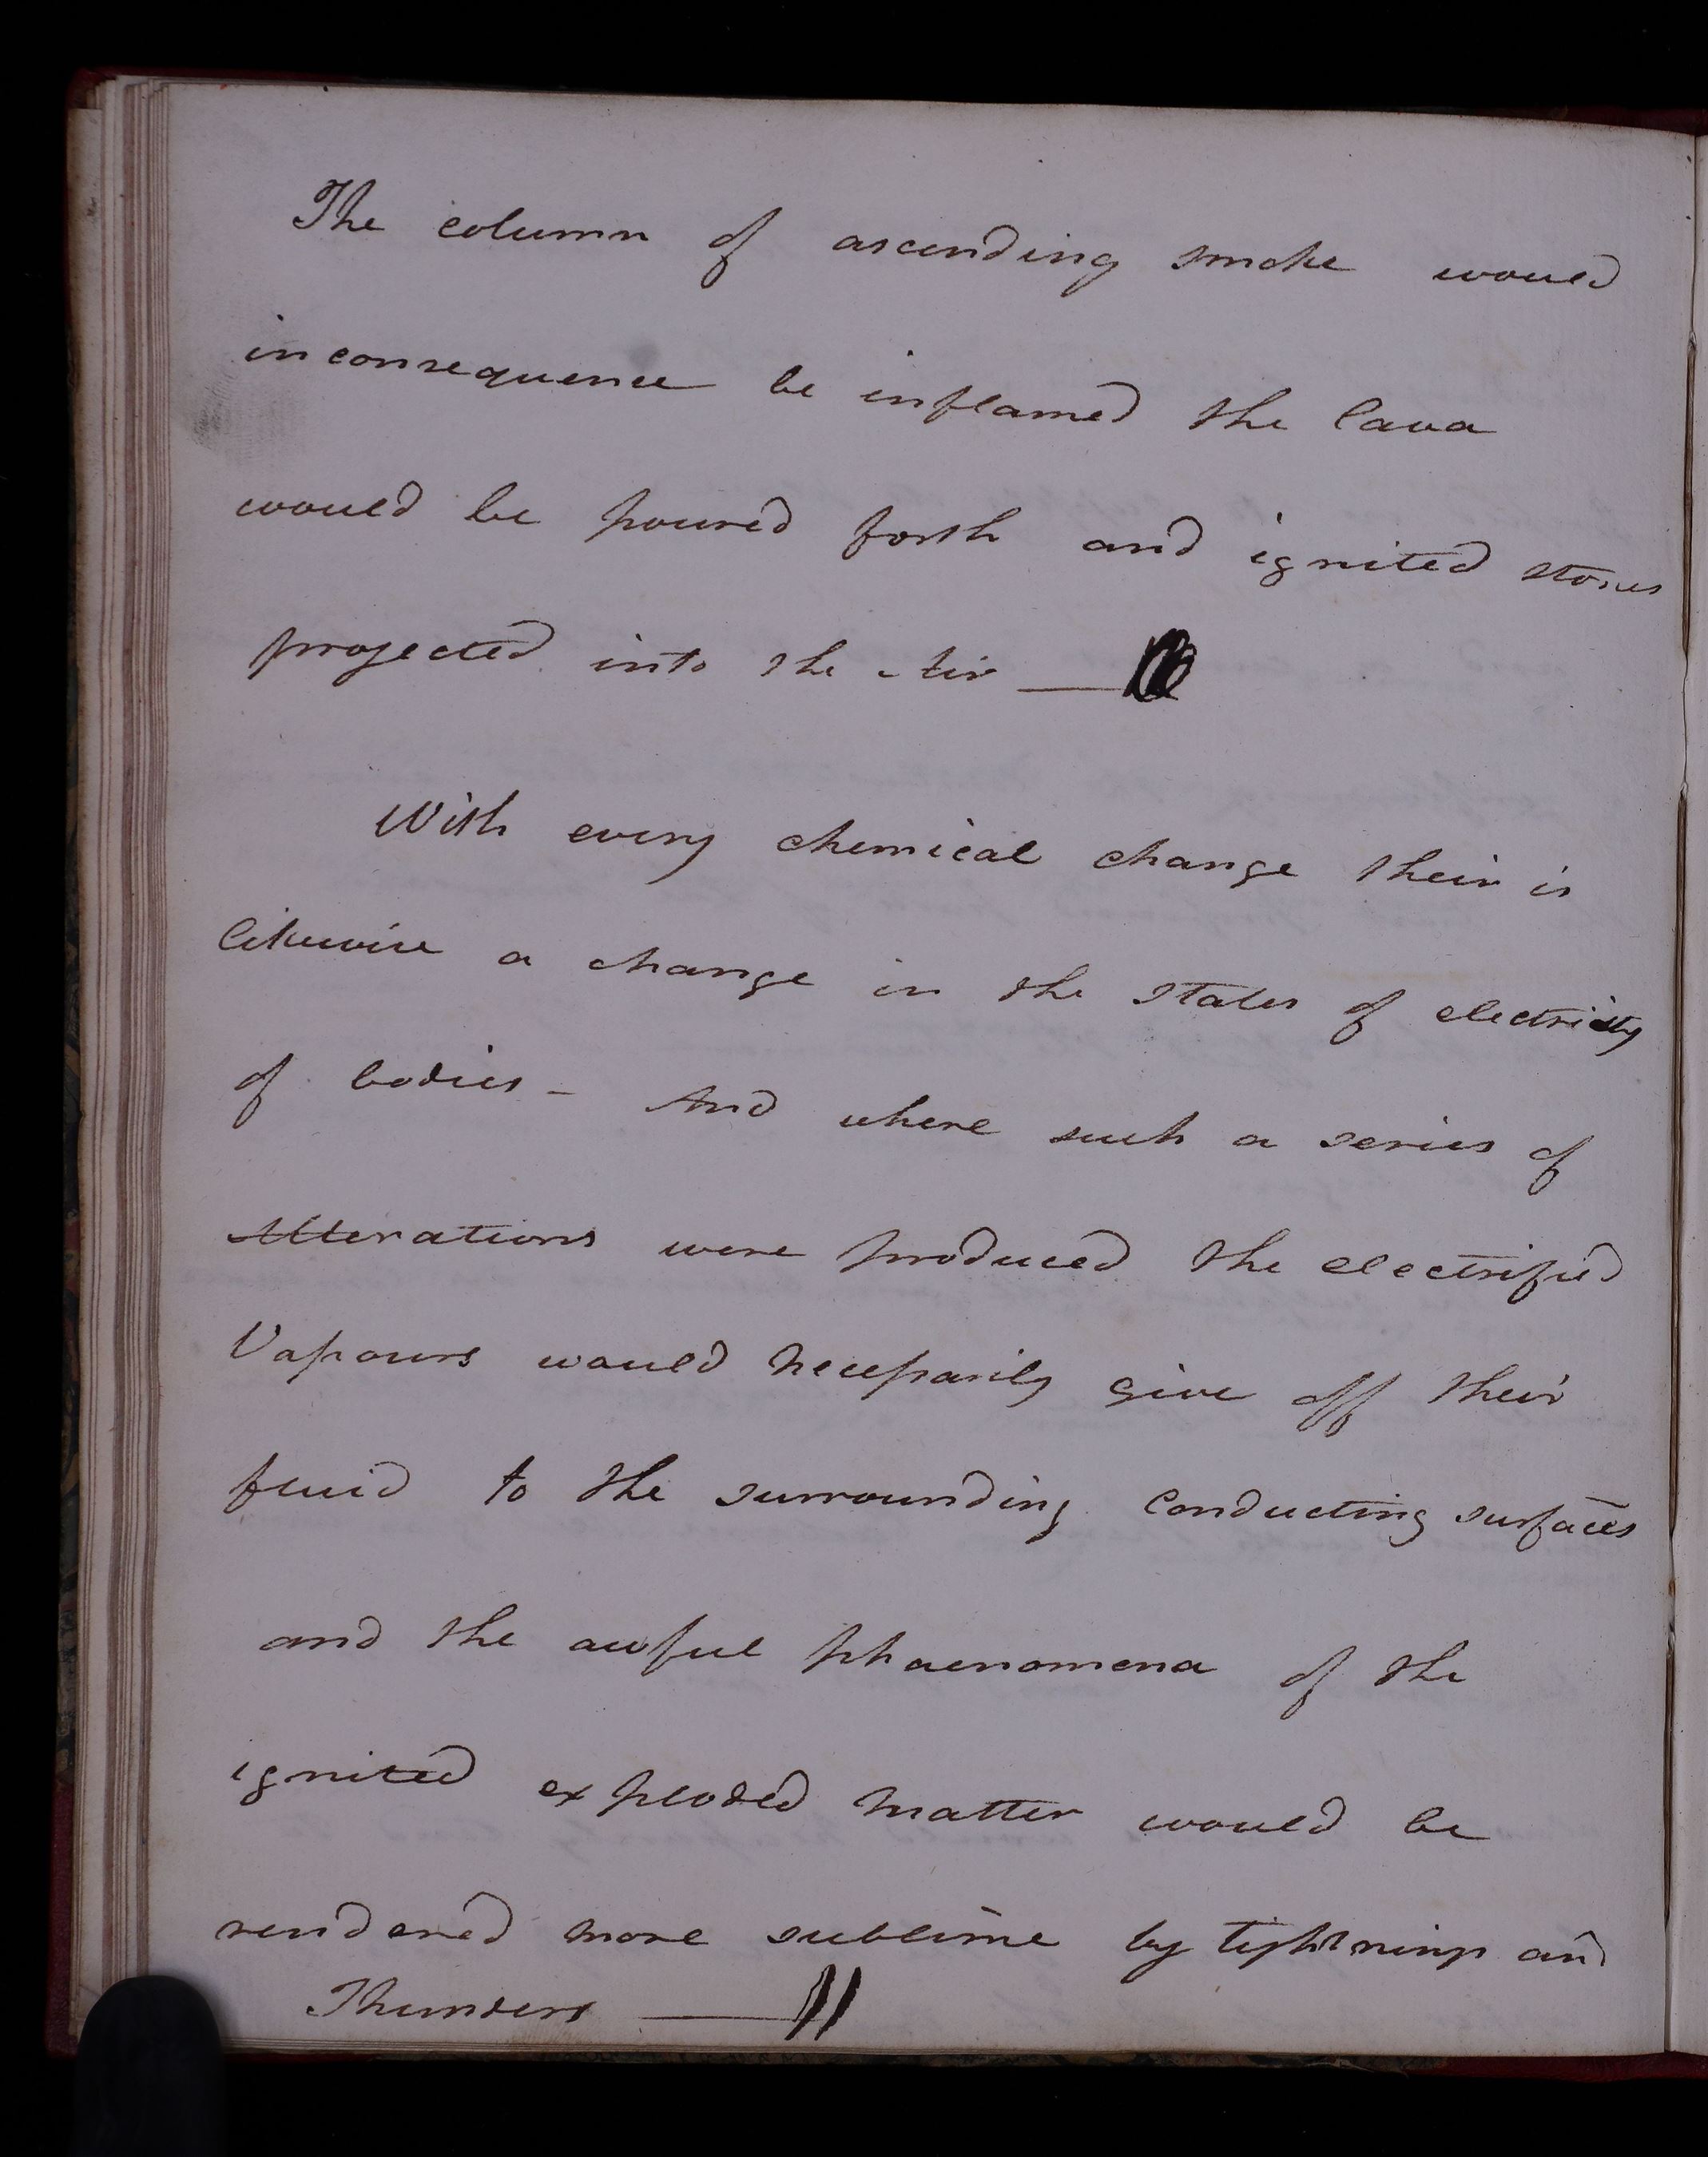 The column of ascending smoke would
in consequence be inflamed the lava
would be poured forth and ignited stones
projected into the Air —
With every chemical change their is
likewise a change in the states of electricity
of bodies - And where such a series of
Alterations were produced the electrified
Vapours would necessarily give off their
fluid to the surrounding Conducting surfaces
and the awful phaenomena of the
ignited exploded matter would be
rendered more sublime by lightnings and
Thunders — //